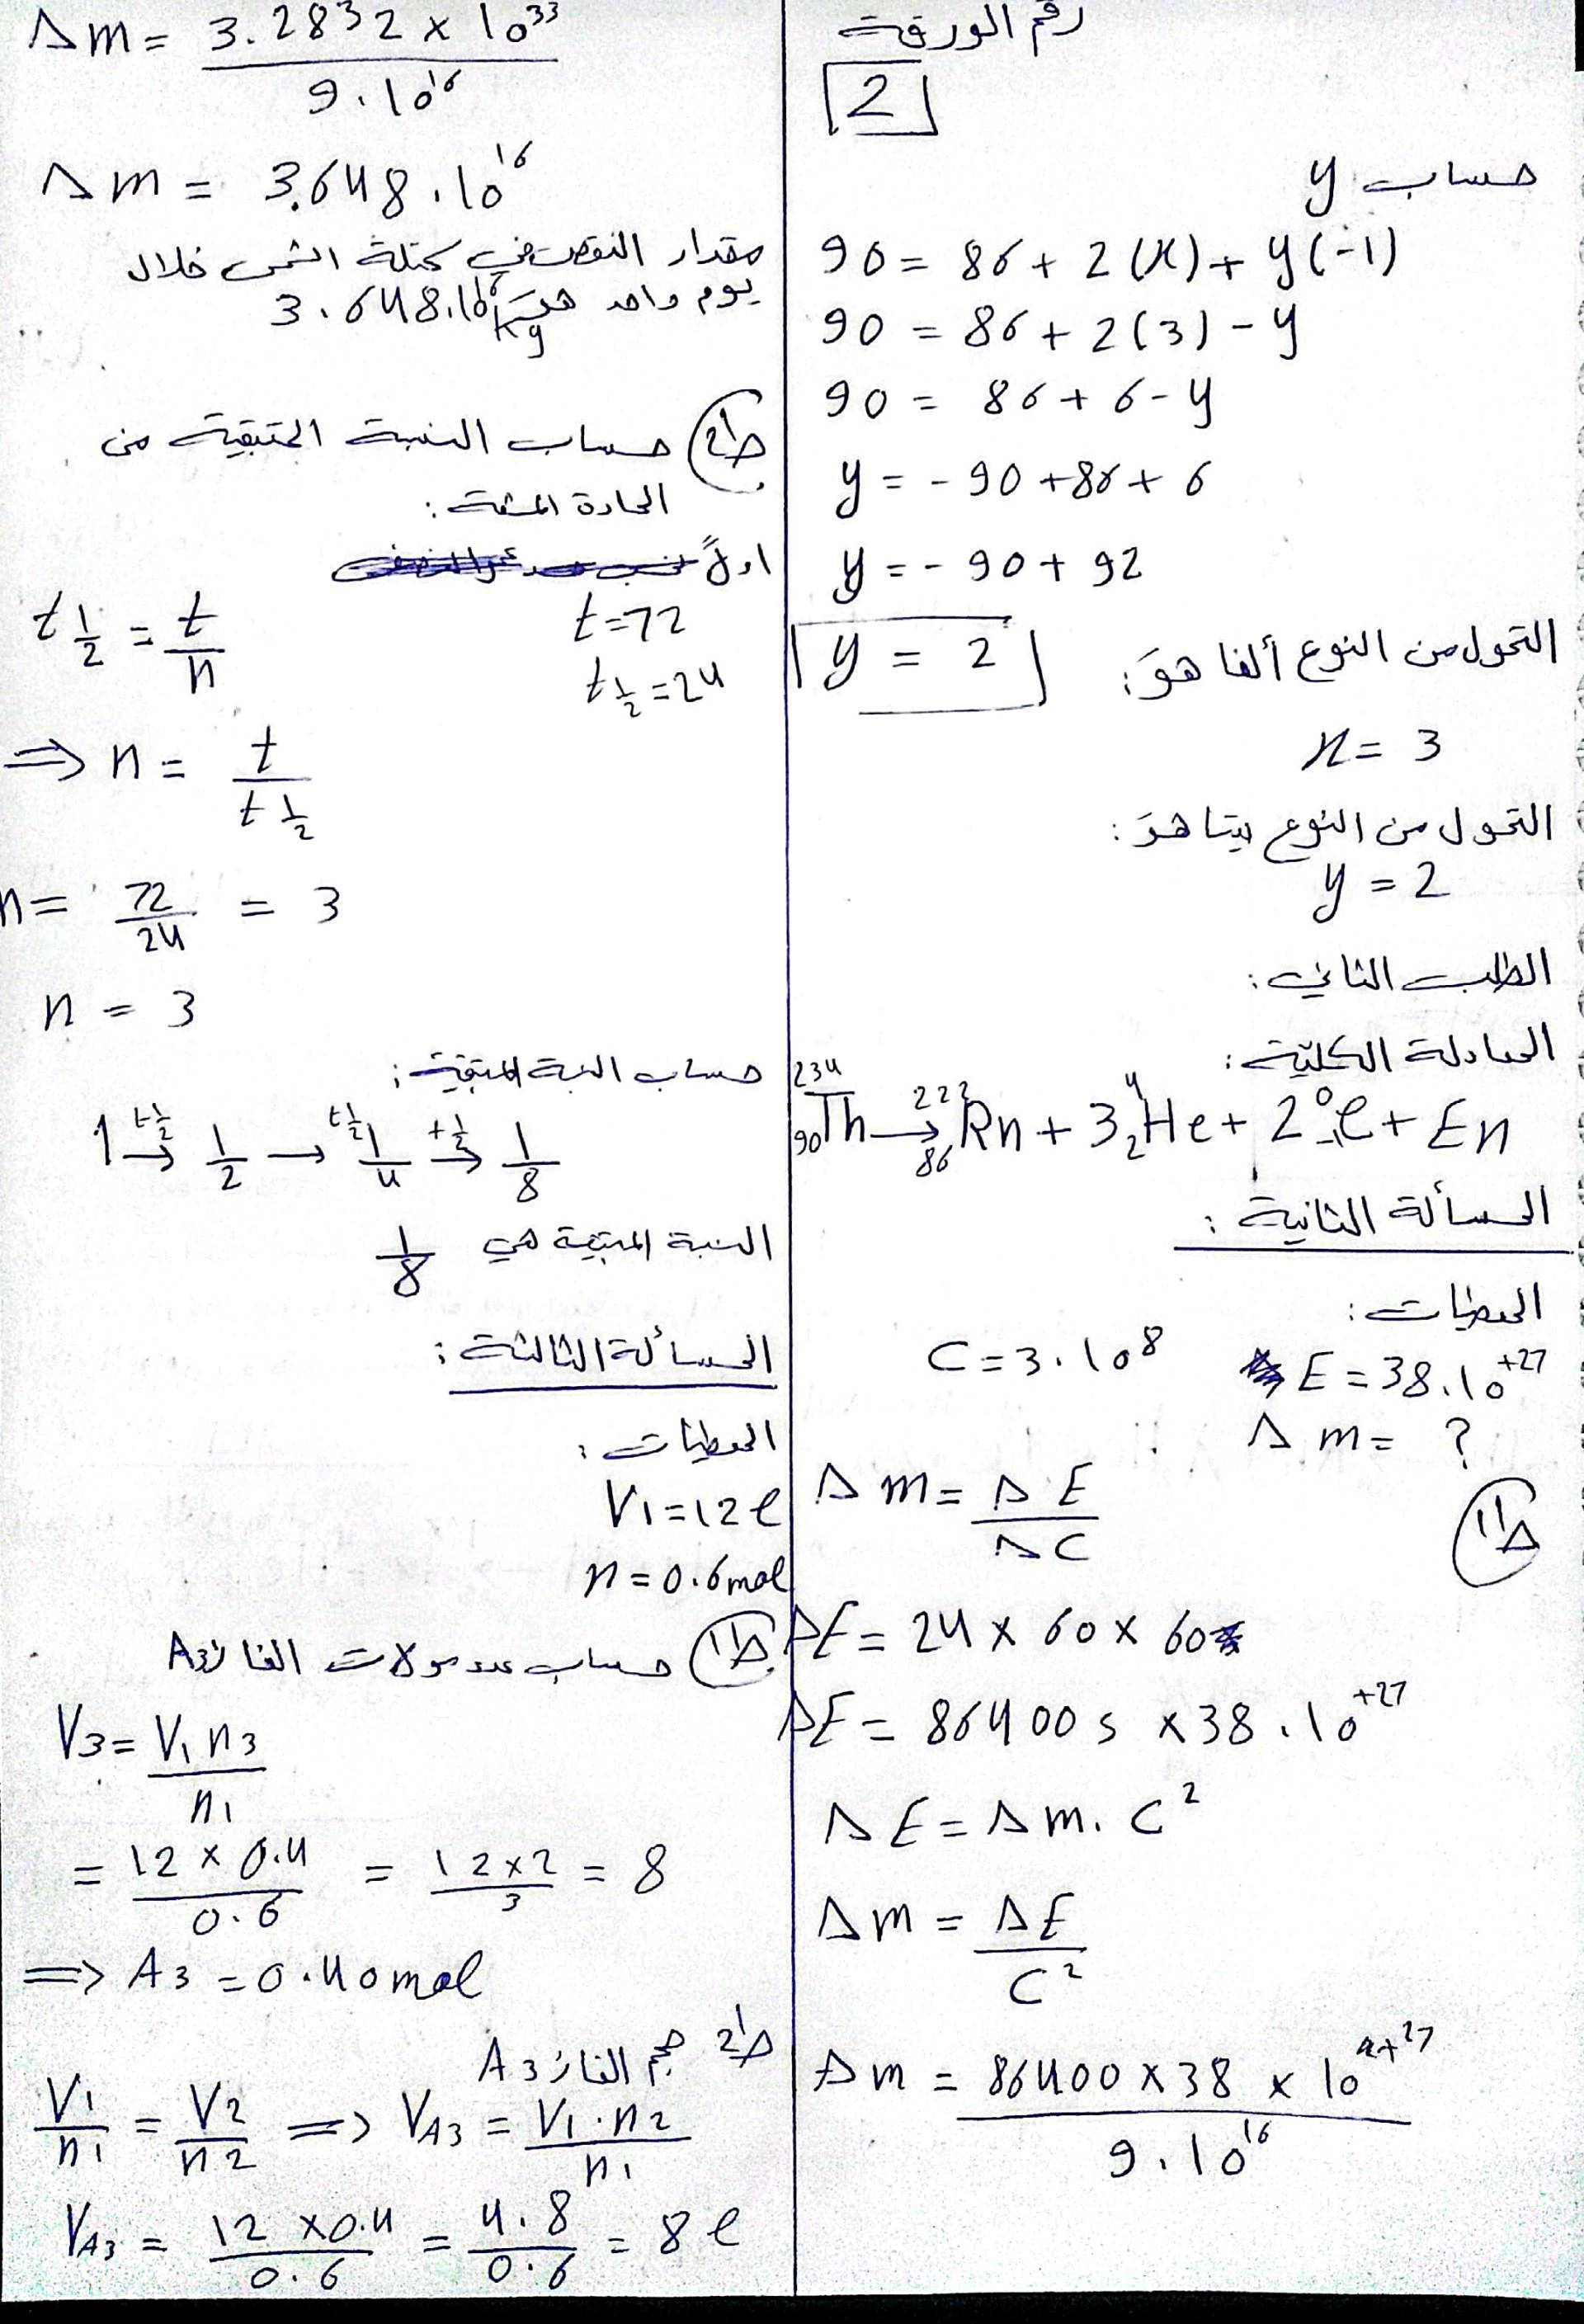 رقم الورقة
2
حساب y
90 = 86 + 2(x) + y(-1)
90 = 86 + 2(3) - y
90 = 86 + 6 - y
y = - 90 + 86 + 6
y = - 90 + 92
y = 2
التحول من النوع ألفا هوَ:
x = 3
التحول من النوع بيتا هوَ:
y = 2
الطلب الثاني:
المعادلة الكليّة:
²³⁴₉₀Th → ²²²₈₆Rn + 3 ⁴₂He + 2 ⁰₋₁e + En
المسألة الثانية:
المعطيات:
E = 38.10⁺²⁷ C = 3.10⁸
Δm = ?
ط1
Δm = ΔE / ΔC
ΔE = 24 × 60 × 60
ΔE = 86400 s × 38.10⁺²⁷
ΔE = Δm. C²
Δm = ΔE / C²
Δm = 86400 × 38 × 10⁺²⁷ / 9.10¹⁶
Δm = 3.2832 × 10³³ / 9.10¹⁶
Δm = 3.648.10¹⁶
مقدار النقص في كتلة الشمس خلال
يوم واحد هوَ 3.648.10¹⁶ Kg
ط2 حساب النسبة المتبقية من
المادة المشعة:
اولاً
t = 72
t½ = 24
t½ = t / n
⇒ n = t / t½
n = 72 / 24 = 3
n = 3
حساب النسبة المتبقية:
1 →(t½) 1/2 →(t½) 1/4 →(t½) 1/8
النسبة المتبقية هي 1/8
المسألة الثالثة:
المعطيات:
V1 = 12 l
n = 0.6 mol
ط1 حساب عدد مولات الغاز A3
V3 = V1 n3 / n1
= 12 × 0.4 / 0.6 = 12 × 2 / 3 = 8
⇒ A3 = 0.40 mol
ط2 حجم الغاز A3
V1 / n1 = V2 / n2 ⇒ VA3 = V1 . n2 / n1
VA3 = 12 × 0.4 / 0.6 = 4.8 / 0.6 = 8 l